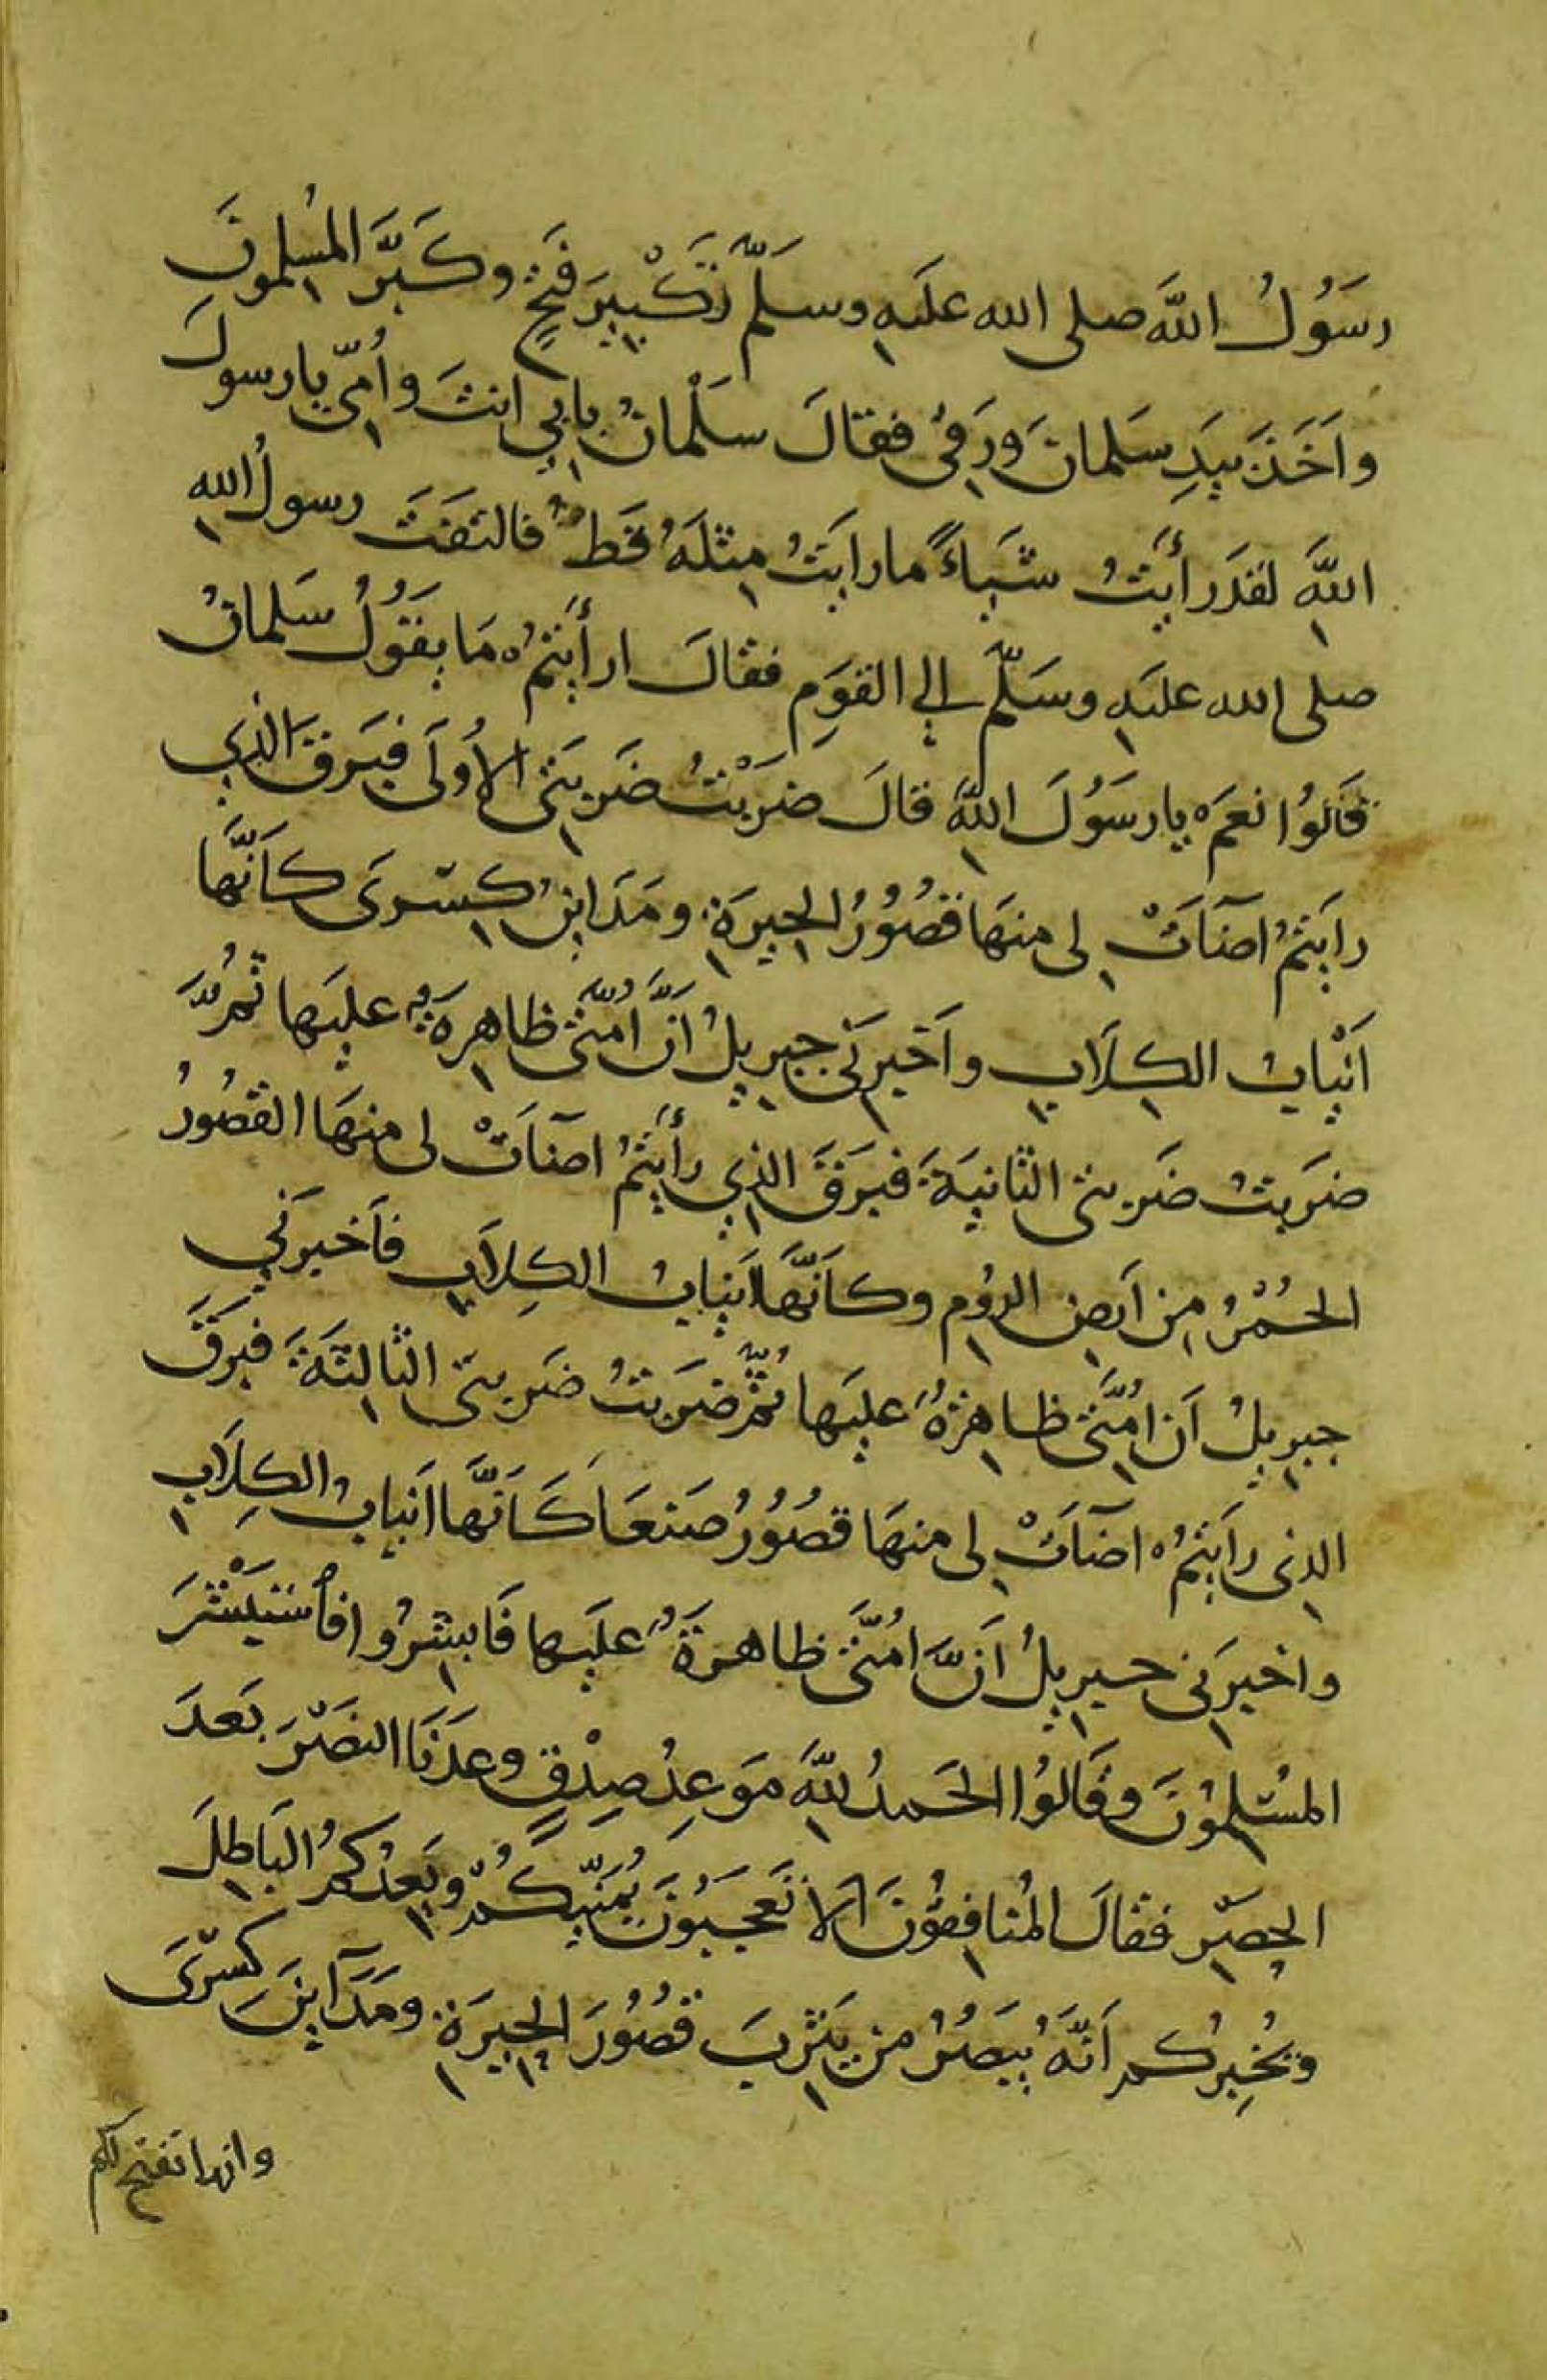 رَسُولُ اللَّهِ صلى الله عليه وسلَّم تَكْبِيرَ فَتْحٍ وكَبَّرَ المُسْلِمونَ
واَخَذَ بِيَدِ سَلمانَ ورَقِىَ فقالَ سَلْمانُ بِابى انتَ وأُمّى يا رسولَ
اللَّهِ لقد رأيتُ شَياءً ما رايتُ مِثلَهُ قَطُّ فالتفَتَ رسولُ الله
صلى الله عليه وسَلَّم إلى القَومِ فقالَ ارأيتُمْ مَا يقُولُ سَلمانُ
قَالُوا نعَمْ يا رسُولَ اللَّهِ قالَ ضرَبْتُ ضَربَتى الأُولَى فبَرقَ الَّذِي
رايتُمْ اضآءَتْ لى منهَا قصُورُ الحِيرَةِ ومَدَاينُ كِسرَى كاَنَّها
اَنْيابُ الكِلَابِ واَخبرَنى جبرِيلُ انَّ اُمَّتى ظاهِرةٌ عليها ثمَّ
ضرَبتُ ضَربتى الثانيَةَ فبَرَقَ الذِي رأيتُمْ اضآءَتْ لى منهَا القصُورُ
الحُمْرُ مِن اَرضِ الرُومِ وكاَنَّها اَنيابُ الكِلاَبِ فاَخبرَنِي
جبرِيلُ اَن اُمَّتى ظاهرةٌ عليها ثمَّ ضرَبتُ ضَربتى الثالِثَةَ فبرَقَ
الذِى رايتُمْ اضآءَتْ لى منهَا قصُورُ صَنعَا كَاَنَّها اَنيابُ الكِلَابِ
واخبرَنى جبرِيلُ اَنَّ اُمَّتى ظاهرةٌ عليها فَابشِرُوا فاسْتَبْشَرَ
المُسْلِمُونَ وقَالُوا الحَمدُ للَّهِ مَوعِدُ صِدْقٍ وعَدَنَا النصْرَ بَعدَ
الحِصَرِ فقالَ المُنافِقُونَ اَلا تعجَبُونَ يُمَنّيكُمْ ويَعِدُكمُ البَاطِلَ
ويُخبِرُكم اَنَّهُ يُبصِرُ مِن يَثرِبَ قصُورَ الحِيرَةِ ومَدَآينَ كِسْرَى
وانها تفتح لكم